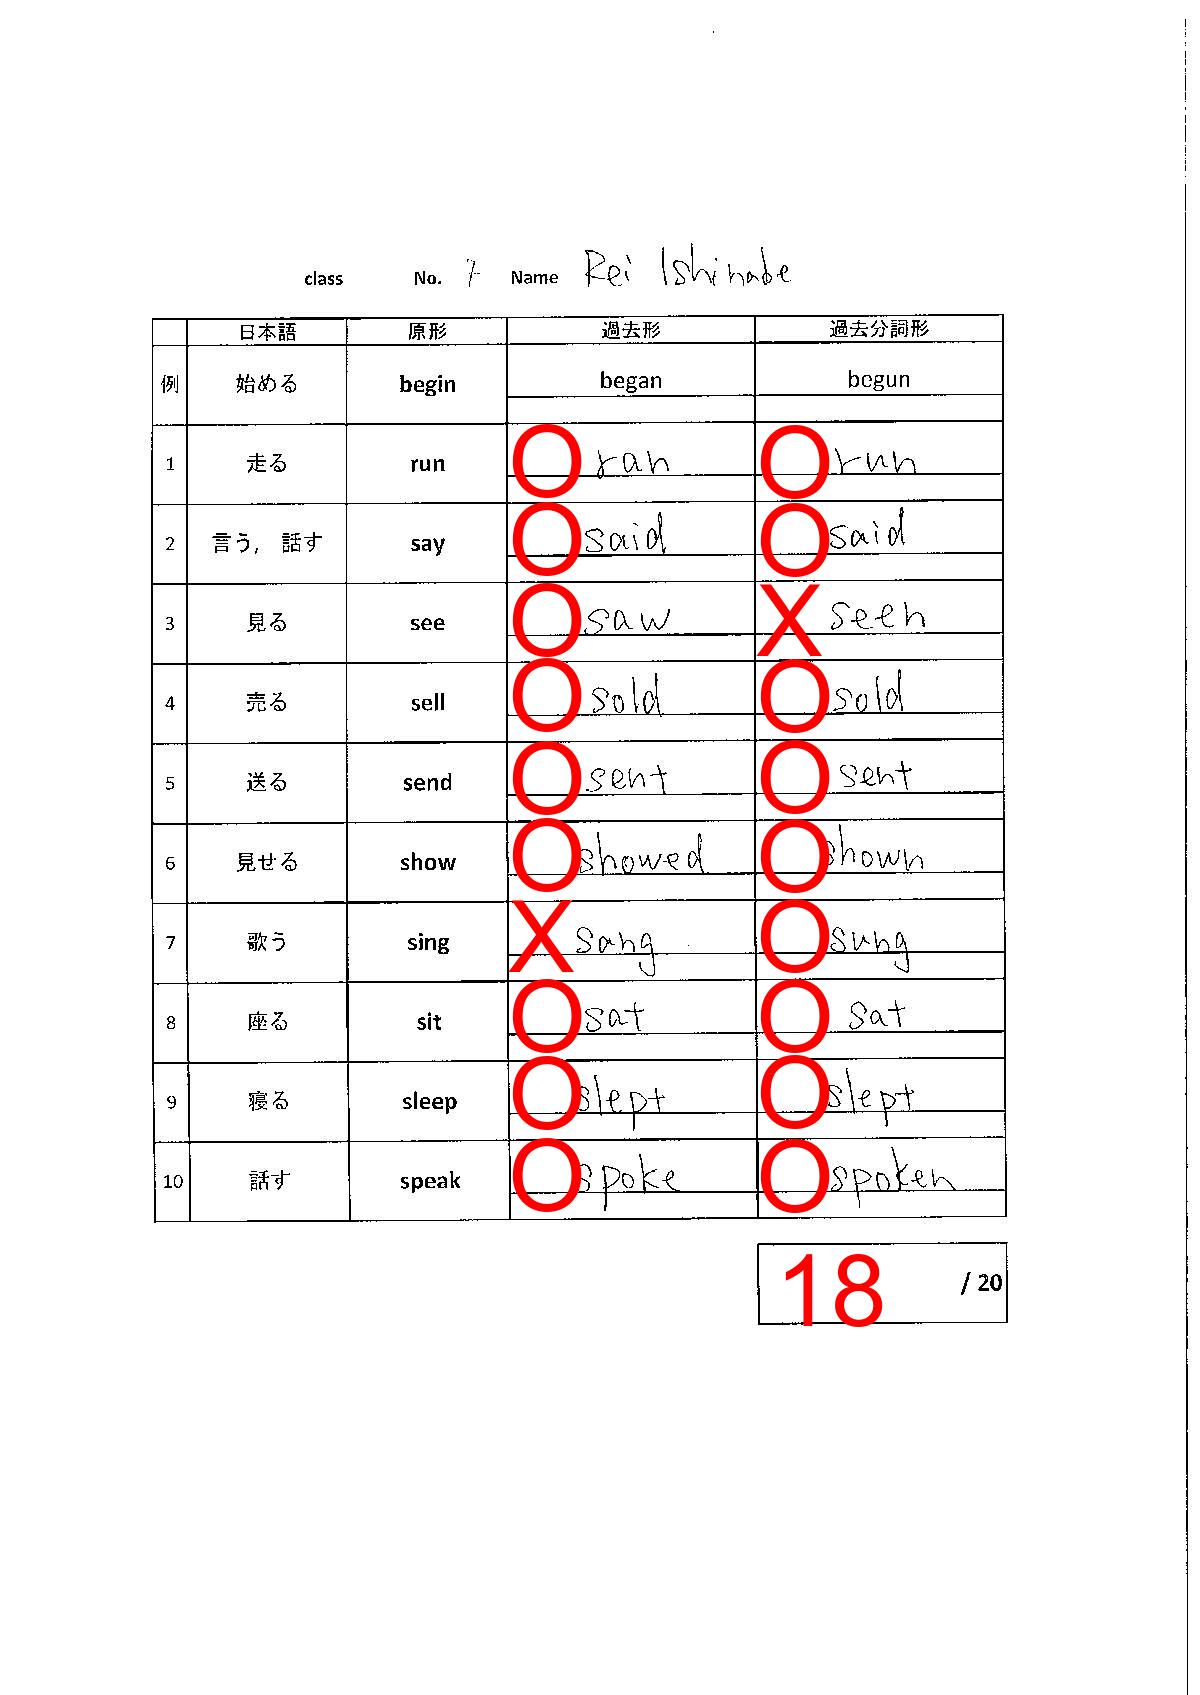 class No. 7 Name Rei Ishinabe
日本語 原形 過去形 過去分詞形
例 始める begin began begun
1 走る run O ran O run
2 言う, 話す say O said O said
3 見る see O saw X seen
4 売る sell O sold O sold
5 送る send O sent O sent
6 見せる show O showed O shown
7 歌う sing X sang O sung
8 座る sit O sat O sat
9 寝る sleep O slept O slept
10 話す speak O spoke O spoken
18 / 20